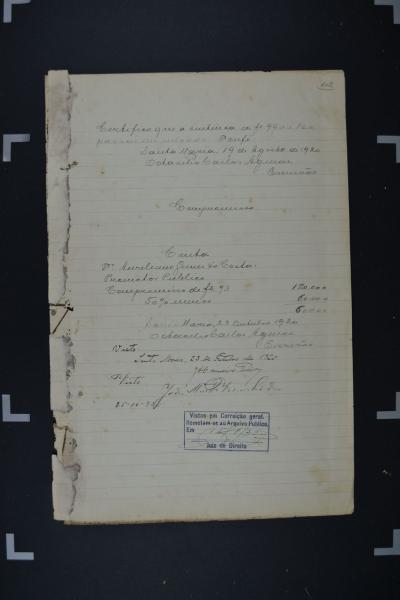 102
Certifico que a sentença de fl 99 a 100
passou em julgado. Doufé
Santa Maria, 19 de Agosto de 1920
Octacilio Carlos Aguiar
Escrivão
Compromisso
Conta
Dr. Aureliano da Costa.
Promotor Publico
Compromisso de fl 93 120.000
50% menos 60.000
60.000
Santa Maria, 23 Outubro 1920
Octacilio Carlos Aguiar
Escrivão
Visto
Santa Maria, 23 de de 1920
Visto
Vistos em Correição geral.
Remetam-se ao Arquivo Público.
Em
Juiz de Direito